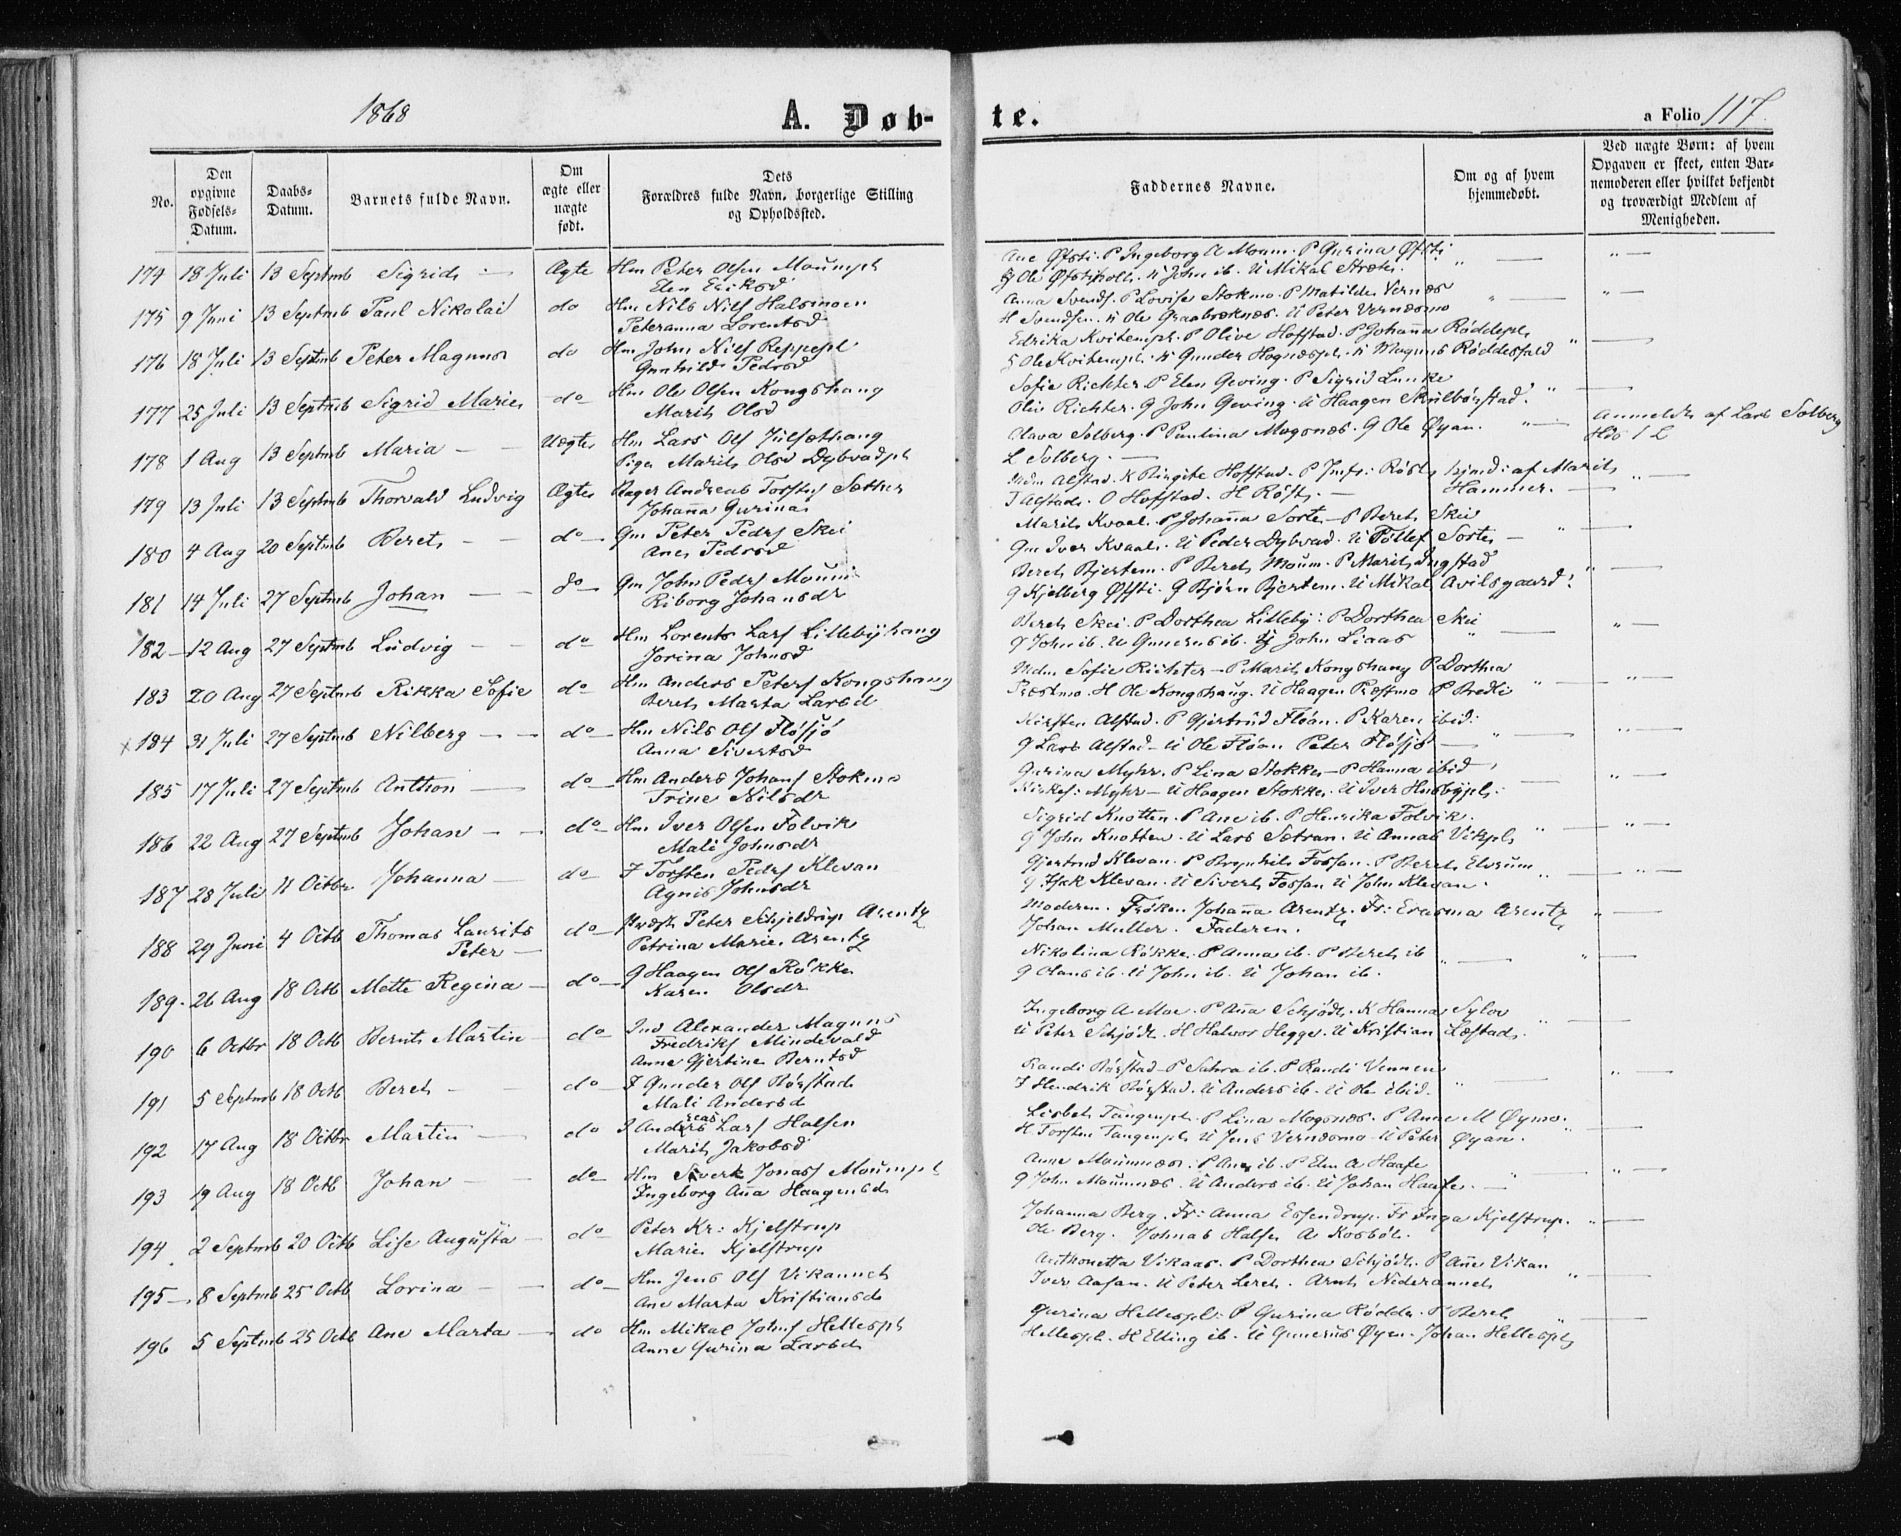 1868
A. Døb-
te.
a Folio 117.
No.
Den opgivne Fødsels-Datum.
Daabs-Datum.
Barnets fulde Navn.
Om ægte eller uægte født.
Dets Forældres fulde Navn, borgerlige Stilling og Opholdssted.
Faddernes Navne.
Om og af hvem hjemmedøbt.
Ved uægte Børn: af hvem Opgaven er skeet, enten Barnemoderen eller hvilket bekjendt og troværdigt Medlem af Menigheden.
174 18 Juli 13 Septmb Sigrid Ægte Hm Peter Olsen Maumpl
Elen Eriksd
Ane Øfsti. P Ingeborg A Moum. P Gurina Øfsti
G Ole Øfsti U John ib. U Mikal
175 9 Juni 13 Septmb Paul Nikolai do Hm Nils Nilss Halsmoen
Peteranna Lorentsd
Anna Svends. P Lovise Stokmo. P Matilde Vernæs
H Svendsen. U Ole Graabræknæs. U Peter Vernæsmo
176 18 Juli 13 Septmb Peter Magnus do Hm John Nilss Reppepl
Gunhild Pedersd
Edrika Kvitempl. P Olive Hofstad. P Johanna Røddepl
G Ole Kvitempl. U Gunder Hognæspl. U Magnus Røddesfald
177 25 Juli 13 Septmb Sigrid Marie do Hm Ole Olsen Kongshaug
Marit Olsd
Sofie Richter P Elen Geving. P Sigrid Lunke
Oliv Richter. G John Geving. U Haagen Skulbørstad.
178 1 Aug 13 Septmb Maria Uægte Hm Lars Ols
Pige Marit Olsd Dybvadpl
Clava Solberg. P Paulina Mogsnæs. G Ole Øyan.
L Solberg.
Anmeldt af Lars Solberg
179 13 Juli 13 Septmb Thorvald Ludvig Ægte Bager Andreas Torstens Sæther
Johanna Gurina
Mdm Alstad. K Ringite Hofstad. P Jmfr: Røst Hjmd: af Marit
T Alstad. O Hofstad. H Røst. Hammer.
180 4 Aug 20 Septmb Beret do Gm Peter Peders Skei
Ane Pedersd
Marit Kvaal. P Johanna Sorte. P Beret Skei
Gm Iver Kvaal. U Peder Dybvad. U Tollef Sorte
181 14 Juli 27 Septmb Johan do Gm John Peders Moum
Riborg Johansdr
Beret Bjertem. P Beret Moum. P Marit Ingstad
G Kjelberg Øfsti. G Bjørn Bjertem. U Mikal Avilsgaard
182 12 Aug 27 Septmb Ludvig do Hm Lorents Larss Lillebyhaug
Jorina Johnsd
Beret Skei. P Dorthea Lilleby: P Dorthea Skei
G John ib. U Gunerus ib. G John Liaas
183 20 Aug 27 Septmb Rikka Sofie do Hm Anders Peters Kongshaug
Beret Marta Larsd
Mdm Sofie Richter P Marit Kongshaug P Dorthea
Præstmo. H Ole Kongshaug. U Haagen Præstmo P Bredli
184 31 Juli 27 Septmb Nilberg do Hm Nils Ols Fløsjø
Anna Sivertsd
Kirsten Alstad. P Gjertrud Fløan. P Karen ibid:
G Lars Alstad. U Ole Fløan Peter Fløsjø
185 17 Juli 27 Septmb Anthon do Hm Anders Johans Stokmo
Trine Nilsdr
Gurina Myhr. P Lina Stokke. P Hanna ibid
Kirkes: Myhr. U Haagen Stokke. U Iver Husbypl.
186 22 Aug 27 Septmb Johan do Hm Iver Olsen Folvik
Mali Johnsdr
Sigrid Knotten. P Ane ib. P Henrika Folvik.
G John Knotten. U Lars Sætran. U Annas Vikpl
187 28 Juli 11 Octbr Johanna do I Torsten Peders Klevan
Agnis Johnsdr
Gjertrud Klevan. P Bryntils Fossan. P Beret Elvrum
G Isak Klevan. U Sivert Fossan U John Klevan.
188 29 Juni 4 Octb Thomas Laurits
Peter do Præst Peter Schjeldrup Arentz
Petrina Marie Arentz
Moderen. Frøken Johanna Arentz. Fr: Erasma Arentz
Johan Muller. Faderen.
189. 26 Aug 18 Octb Mette Regina do G Haagen Ols Røkke
Karen Olsdr
Nikolina Røkke. P Anna ib. P Beret ib
G Olaus ib. U John ib. U Johan ib.
190 6 Octbr 18 Octb Bernt Martin do Ind Alexander Magnus
Fredriks Mindevald
Anne Gjertine Berntsd
Ingeborg A Moe. P Ana Schjødt. K Hanna Sylov
U Peter Schjødt. H Halvor Hegge. U Kristian Læstad.
191 5 Septmb 18 Octb Beret do I Gunder Ols Børstad
Mali Andersd
Randi Børstad P Sahra ib. P Randi Vennen
I Hendrik Børstad. U Anders ib. U Ole ibid.
192 17 Aug 18 Octbr Martin do I Andreas Larss Halsen
Marit Jakobsd
Lisbet Tangenpl. P Lina Mogsnæs. P Anne M Øymo.
H Torsten Tangenpl. U Jens Vernæsmo U Peter Øyan.
193 19 Aug 18 Octb Johan do Hm Siverk Jonass Moumpl
Ingeborg Ana Haagensd
Anne Moumnæs. P Ane ib. P Elen A Haafe
G John Moumnæs. U Anders ib. U Johan Haafe.
194 2 Septmb 20 Octb Lise Augusta do Peter Kr: Kjelstrup
Marie Kjelstrup
Johanna Berg. Fr: Anna Essendrup. Fr Inga Kjelstrup.
Ole Berg. Johnas Halsen A Rosbøl.
195 8 Septmb 25 Octb Lorina do Hm Jens Ols Vikannet
Ane Marta Kristiansd
Anthonetta Vikaas. P Dorthea Schjødt. P Ane Vikan
Iver Aasan. U Peter Leret. Arnt Nederannet
196 5 Septmb 25 Octb Ane Marta do Hm Mikal Johns Hellespl
Anne Gurina Larsd
Gurina Hellespl. P Gurina Rødde. P Beret
Hellespl. H Elling ib. U Gunerus Øyen. Johan Hellespl